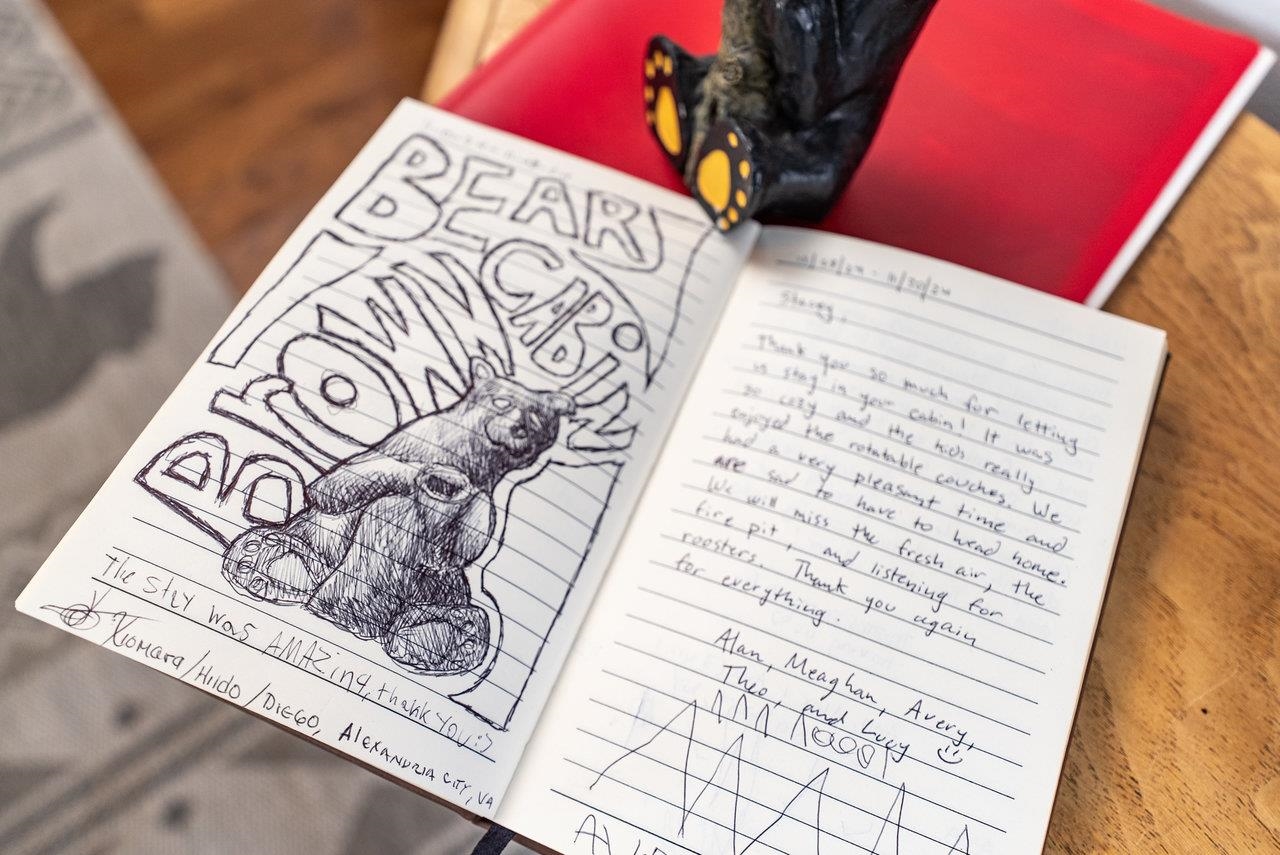 BEAR
CABIN
BROWN
The Stay was AMAZing, thank you :)
Xiomara/Hildo/DIEGO, ALEXANDRIA CITY, VA
11/28/24 - 11/30/24
Stacey,
Thank you so much for letting
us stay in your cabin! It was
so cozy and the kids really
enjoyed the rotatable couches. We
had a very pleasant time and
are sad to have to head home.
We will miss the fresh air, the
fire pit, and listening for
roosters. Thank you again
for everything.
Alan, Meaghan, Avery,
Theo, and Lucy